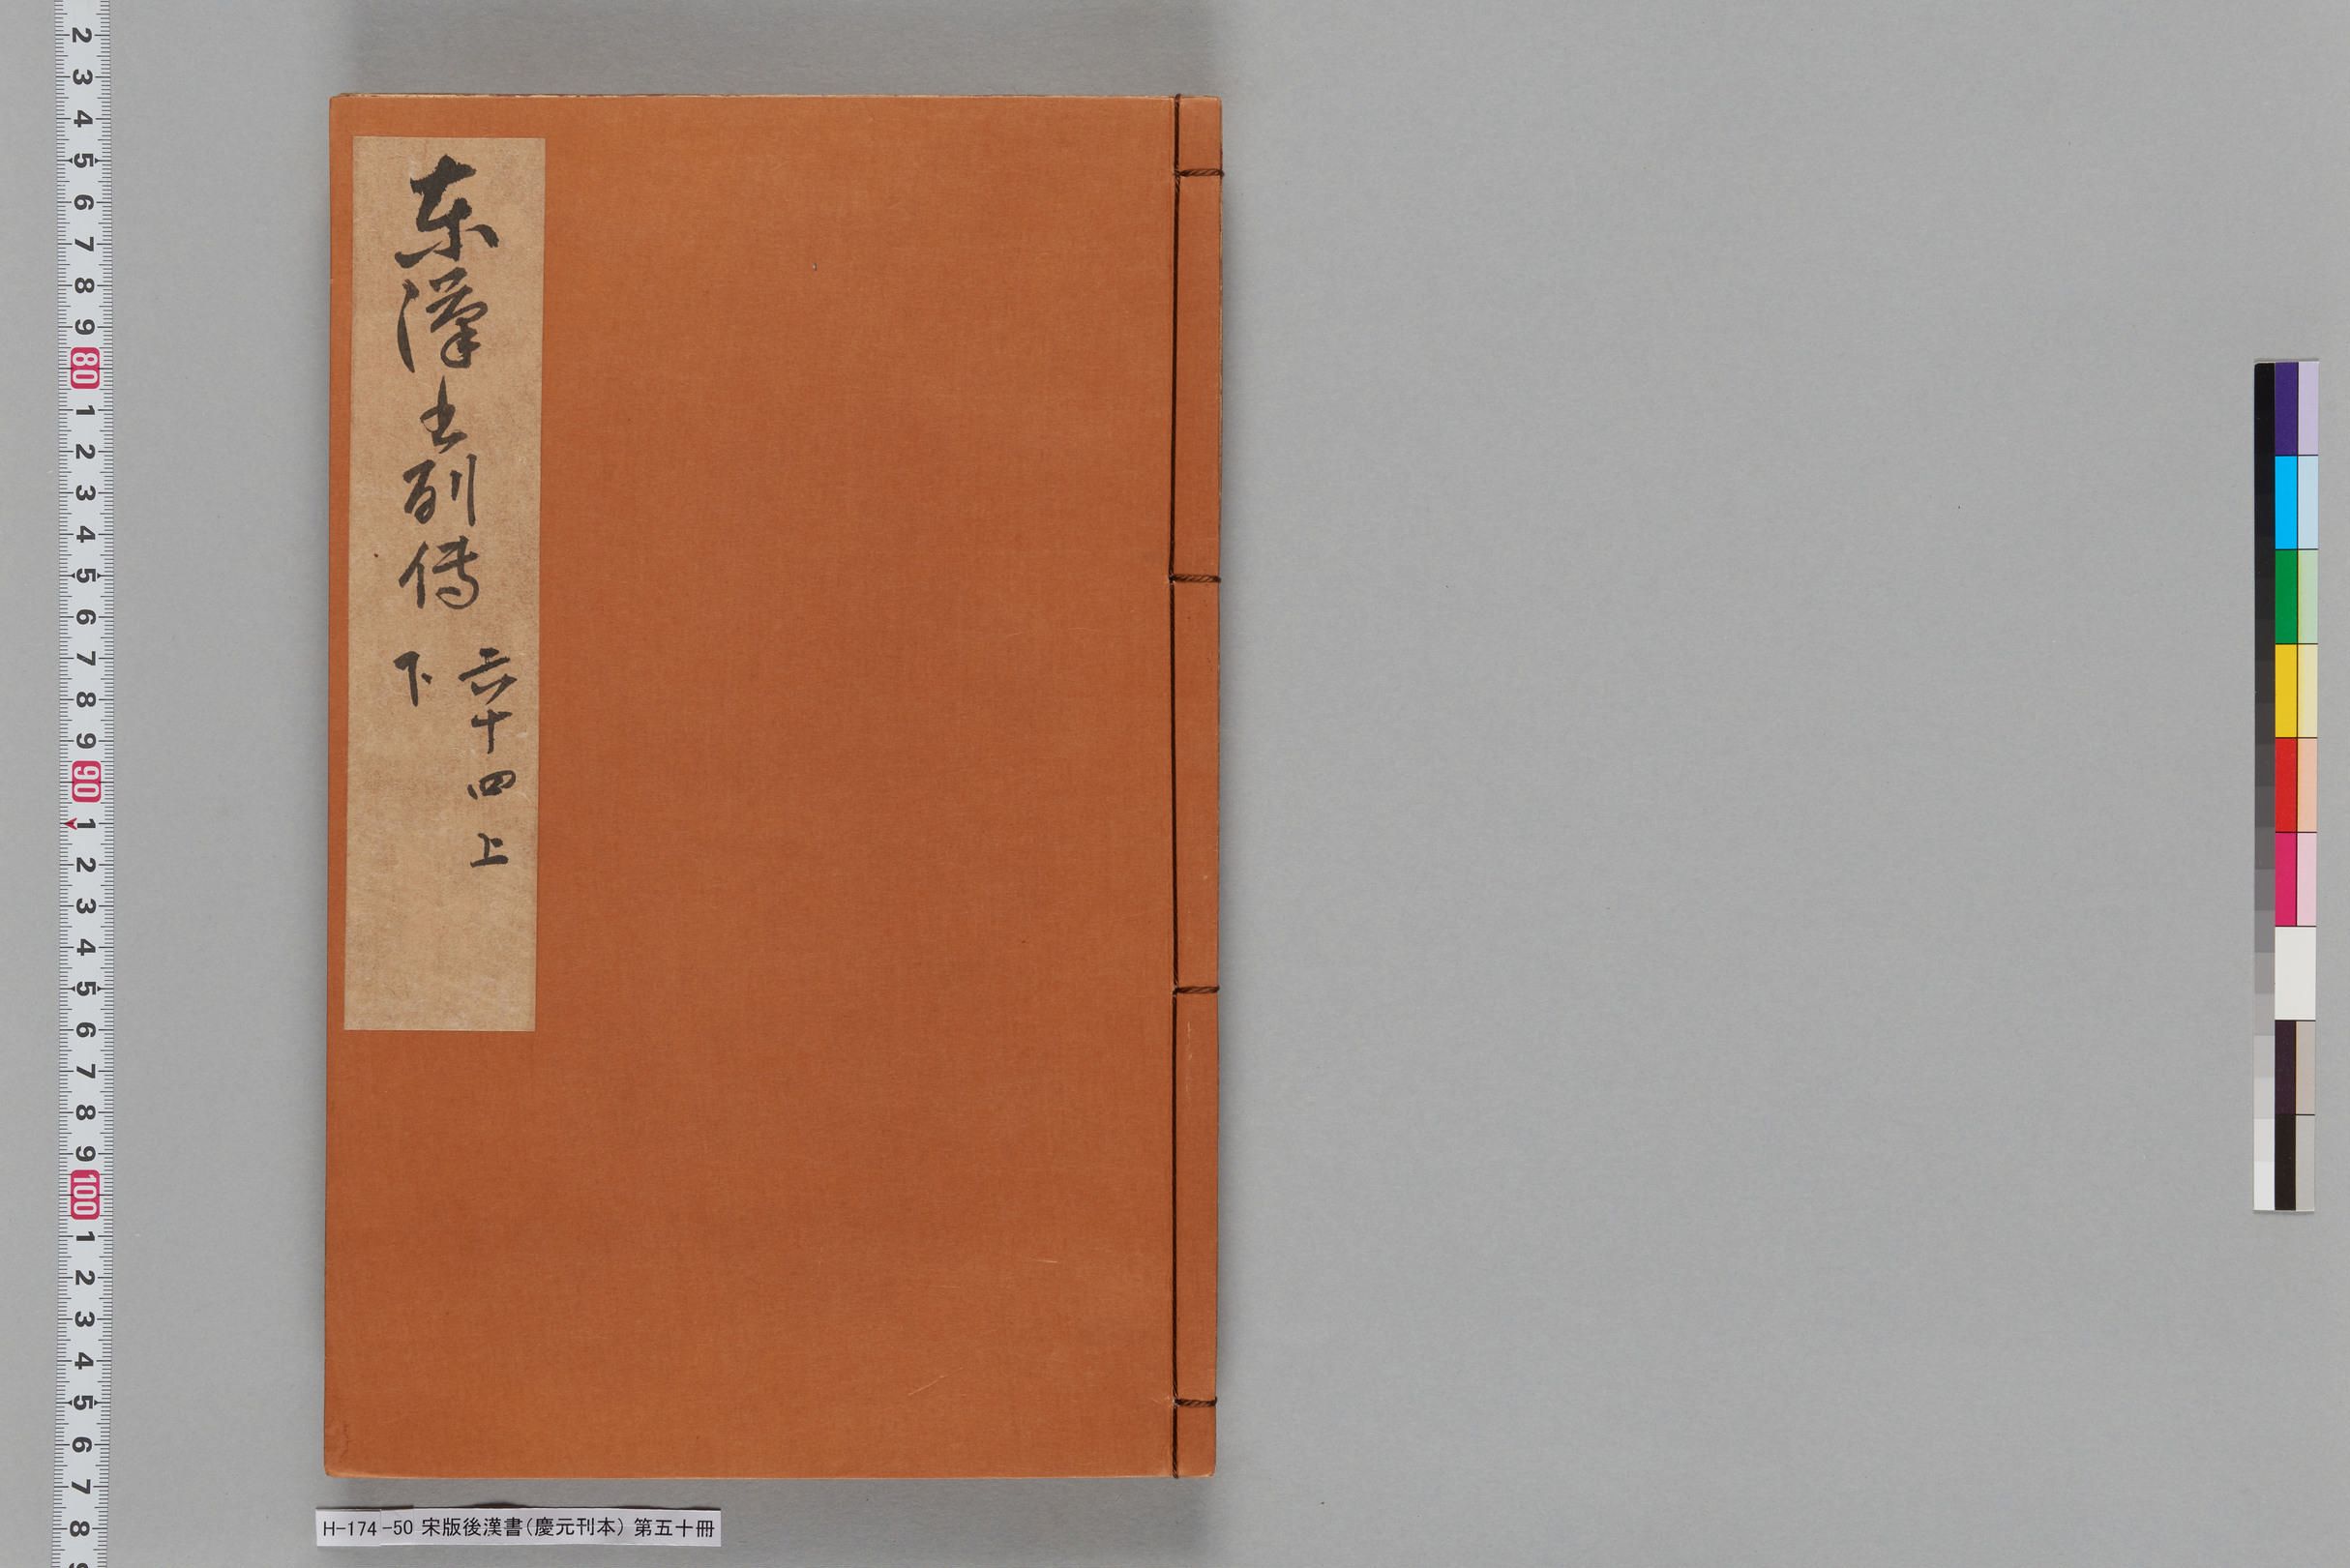 东漢书列傳
六十四上
下
H-174-50 宋版後漢書(慶元刊本) 第五十冊
2 3 4 5 6 7 8 9 80 1 2 3 4 5 6 7 8 9 90 1 2 3 4 5 6 7 8 9 100 1 2 3 4 5 6 7 8